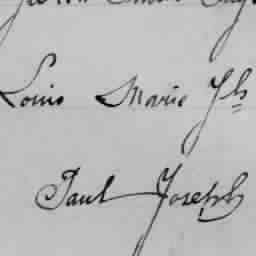 Louis Marie Jh
Paul Joseph